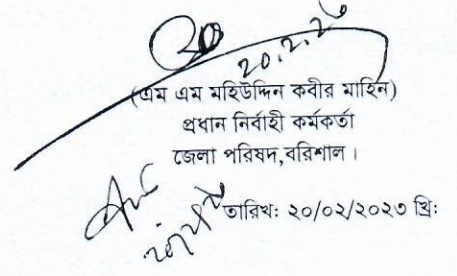 ২০.২.২৩
(এম এম মহিউদ্দিন কবীর মাহিন)
প্রধান নির্বাহী কর্মকর্তা
জেলা পরিষদ,বরিশাল।
তারিখ: ২০/০২/২০২৩ খ্রি: